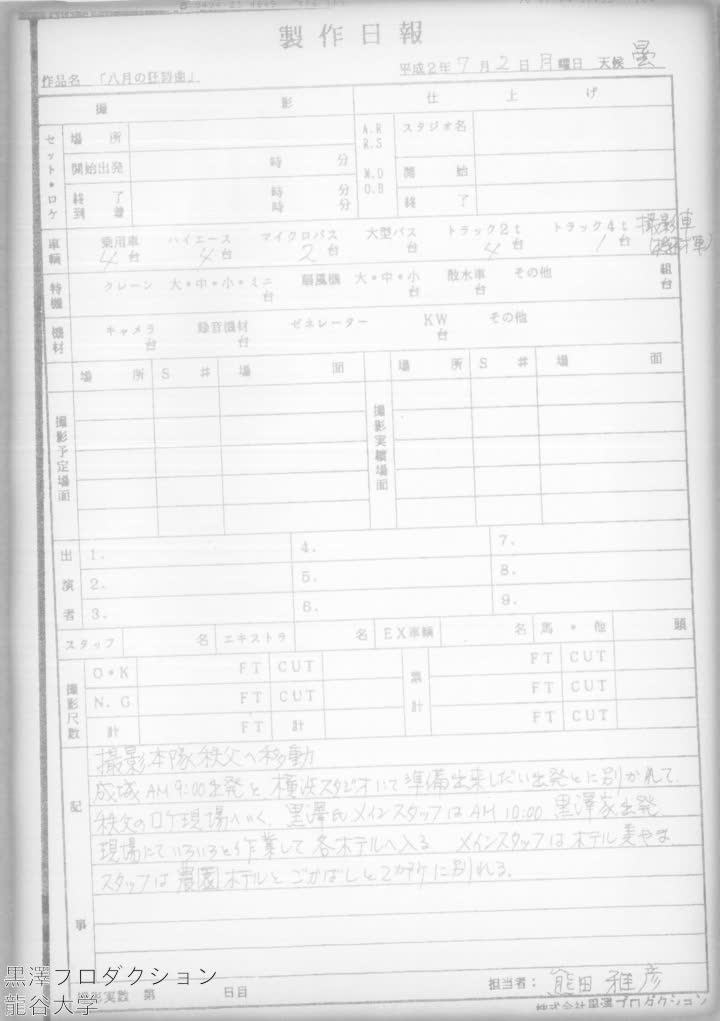 製作日報
作品名 「八月の狂詩曲」 平成2年7月2日月曜日 天候 曇
撮影 仕上げ
セット・ロケ 場所 A.R R.S スタジオ名
開始出発 時 分 M.D D.B 開始
終了 時 分 終了
到着 時 分
車輌 乗用車 4台 ハイエース 4台 マイクロバス 2台 大型バス 台 トラック2t 4台 トラック4t 1台 撮影車
特機 クレーン 大・中・小・ミニ 台 扇風機 大・中・小 台 散水車 台 その他 組台
機材 キャメラ 台 録音機材 台 ゼネレーター KW 台 その他
撮影予定場面 場所 S# 場面 撮影実績場面 場所 S# 場面
出演者 1. 4. 7.
2. 5. 8.
3. 6. 9.
スタッフ 名 エキストラ 名 EX車輌 名 馬・他 頭
撮影尺数 O・K FT CUT 累計 FT CUT
N.G FT CUT FT CUT
計 FT 計 FT CUT
記事
撮影本隊秩父へ移動
成城AM9:00出発と横浜スタジオにて準備出来しだい出発とに別かれて
秩父のロケ現場へいく。黒澤氏メインスタッフはAM10:00 黒澤家出発
現場にていろいろと作業して各ホテルへ入る メインスタッフはホテル美やま
スタッフは農園ホテルとごかばしと2ヵ所に別れる。
撮影実数 第 日目
担当者: 熊田雅彦
株式会社黒澤プロダクション
黒澤プロダクション
龍谷大学